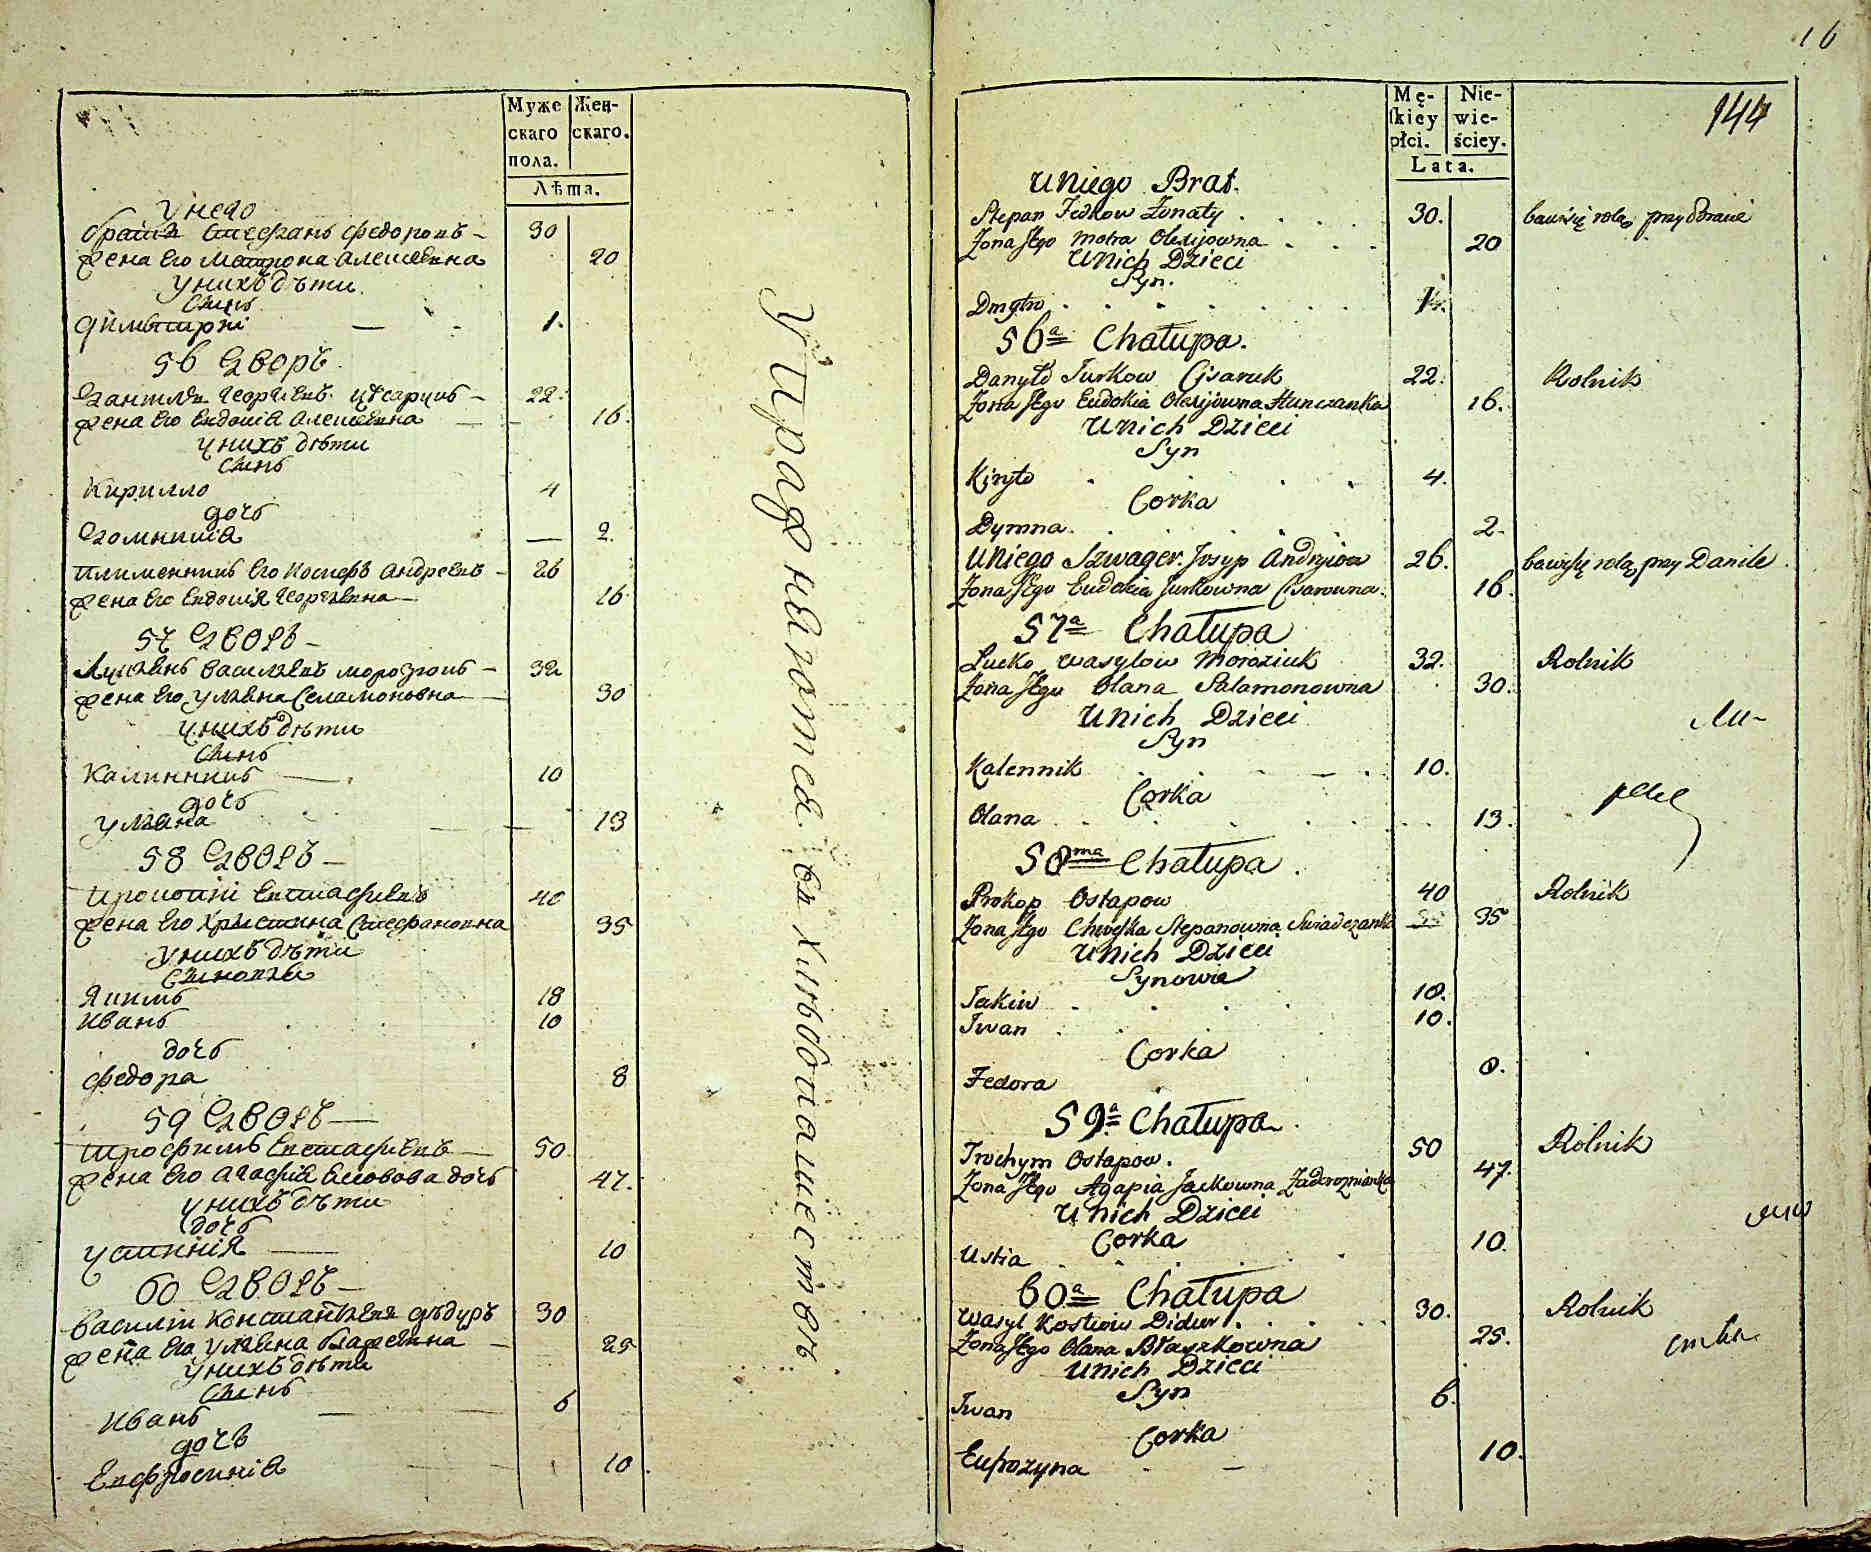 Муже
скаго
пола.
Жен-
скаго.
Лѣта.
у него
братъ Стефанъ Федоровъ 30
жена Его Матрона Алексѣевна 20
у нихъ дѣти
Сынъ
Димытрій 1.
56 Дворъ
Даніилъ Георгіевъ Цѣсарукъ 22.
жена Его Евдокія Алексѣевна 16.
у нихъ дѣти
Сынъ
Кирилло 4
дочь
Домникія 2
племенникъ Его Іосифъ Андреевъ 26
жена Его Евдокія Георгіевна 16
57 Дворъ
Лукіянъ Василіевъ Морозюкъ 32
жена Его Уліяна Селамоновна 30
у нихъ дѣти
Сынъ
Калинникъ 10
дочь
Уліяна 13
58 Дворъ
Прокопій Евстафіевъ 40
жена Его Христина Стефановна 35
у нихъ дѣти
Сыновья
Якимъ 18
Иванъ 10
дочь
Федора 8
59 Дворъ
Трофимъ Евстафіевъ 50
жена Его Агафія Яковова дочь 47.
у нихъ дѣти
дочь
Устинія 10
60 Дворъ
Василій Константіевъ Дѣдуръ 30
жена Его Уліяна Власіевна 25
у нихъ дѣти
Сынъ
Иванъ 6
дочь
Евфросинія 10
Упражняются въ хлѣбопашествѣ
16
144
Mę-
ſkiey
płci.
Nie-
wie-
ściey.
Lata.
U niego Brat.
Stepan Fedkow Żonaty 30. bawi się rolą przy Bracie
Żona Jego Motra Olexijowna 20
U nich Dzieci
Syn.
Dmytro 1.
56a Chałupa.
Danyło Jurkow Cisaruk 22. Rolnik
Żona Jego Eudokia Olexijowna Hunczanka 16.
U nich Dzieci
Syn
Kiryło 4.
Corka
Dymna 2.
U niego Szwager Josyp Andryiow 26. bawi się rolą przy Danile
Żona Jego Eudokia Jurkowna Cisarowna. 16.
57a Chałupa
Lucko Wasylow Moroziuk 32. Rolnik
Żona Jego Olana Salamonowna 30.
U nich Dzieci
Syn
Kalennik 10.
Corka
Olana 13.
58ma Chałupa.
Prokop Ostapow 40 Rolnik
Żona Jego Chweſka Stepanowna Swiadczanka 35
U nich Dzieci
Synowie
Jakiw 18.
Iwan 10.
Corka
Fedora 8.
59a Chałupa.
Trochym Ostapow. 50 Rolnik
Żona Jego Agapia Jackowna Zadoroznianka 47.
U nich Dzieci
Corka
Ustia 10.
60a Chałupa
Wasyl Kostiow Didur 30. Rolnik
Żona Jego Olana Błaszkowna 25.
U nich Dzieci
Syn
Iwan 6.
Corka
Eufrozyna 10.